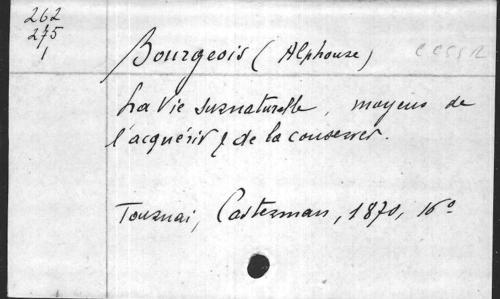 262
275
1
Bourgeois (Alphonse)
CCSSR
La vie surnaturelle, moyens de
l'acquérir & de la conserver.
Tournai, Casterman, 1870, 16º